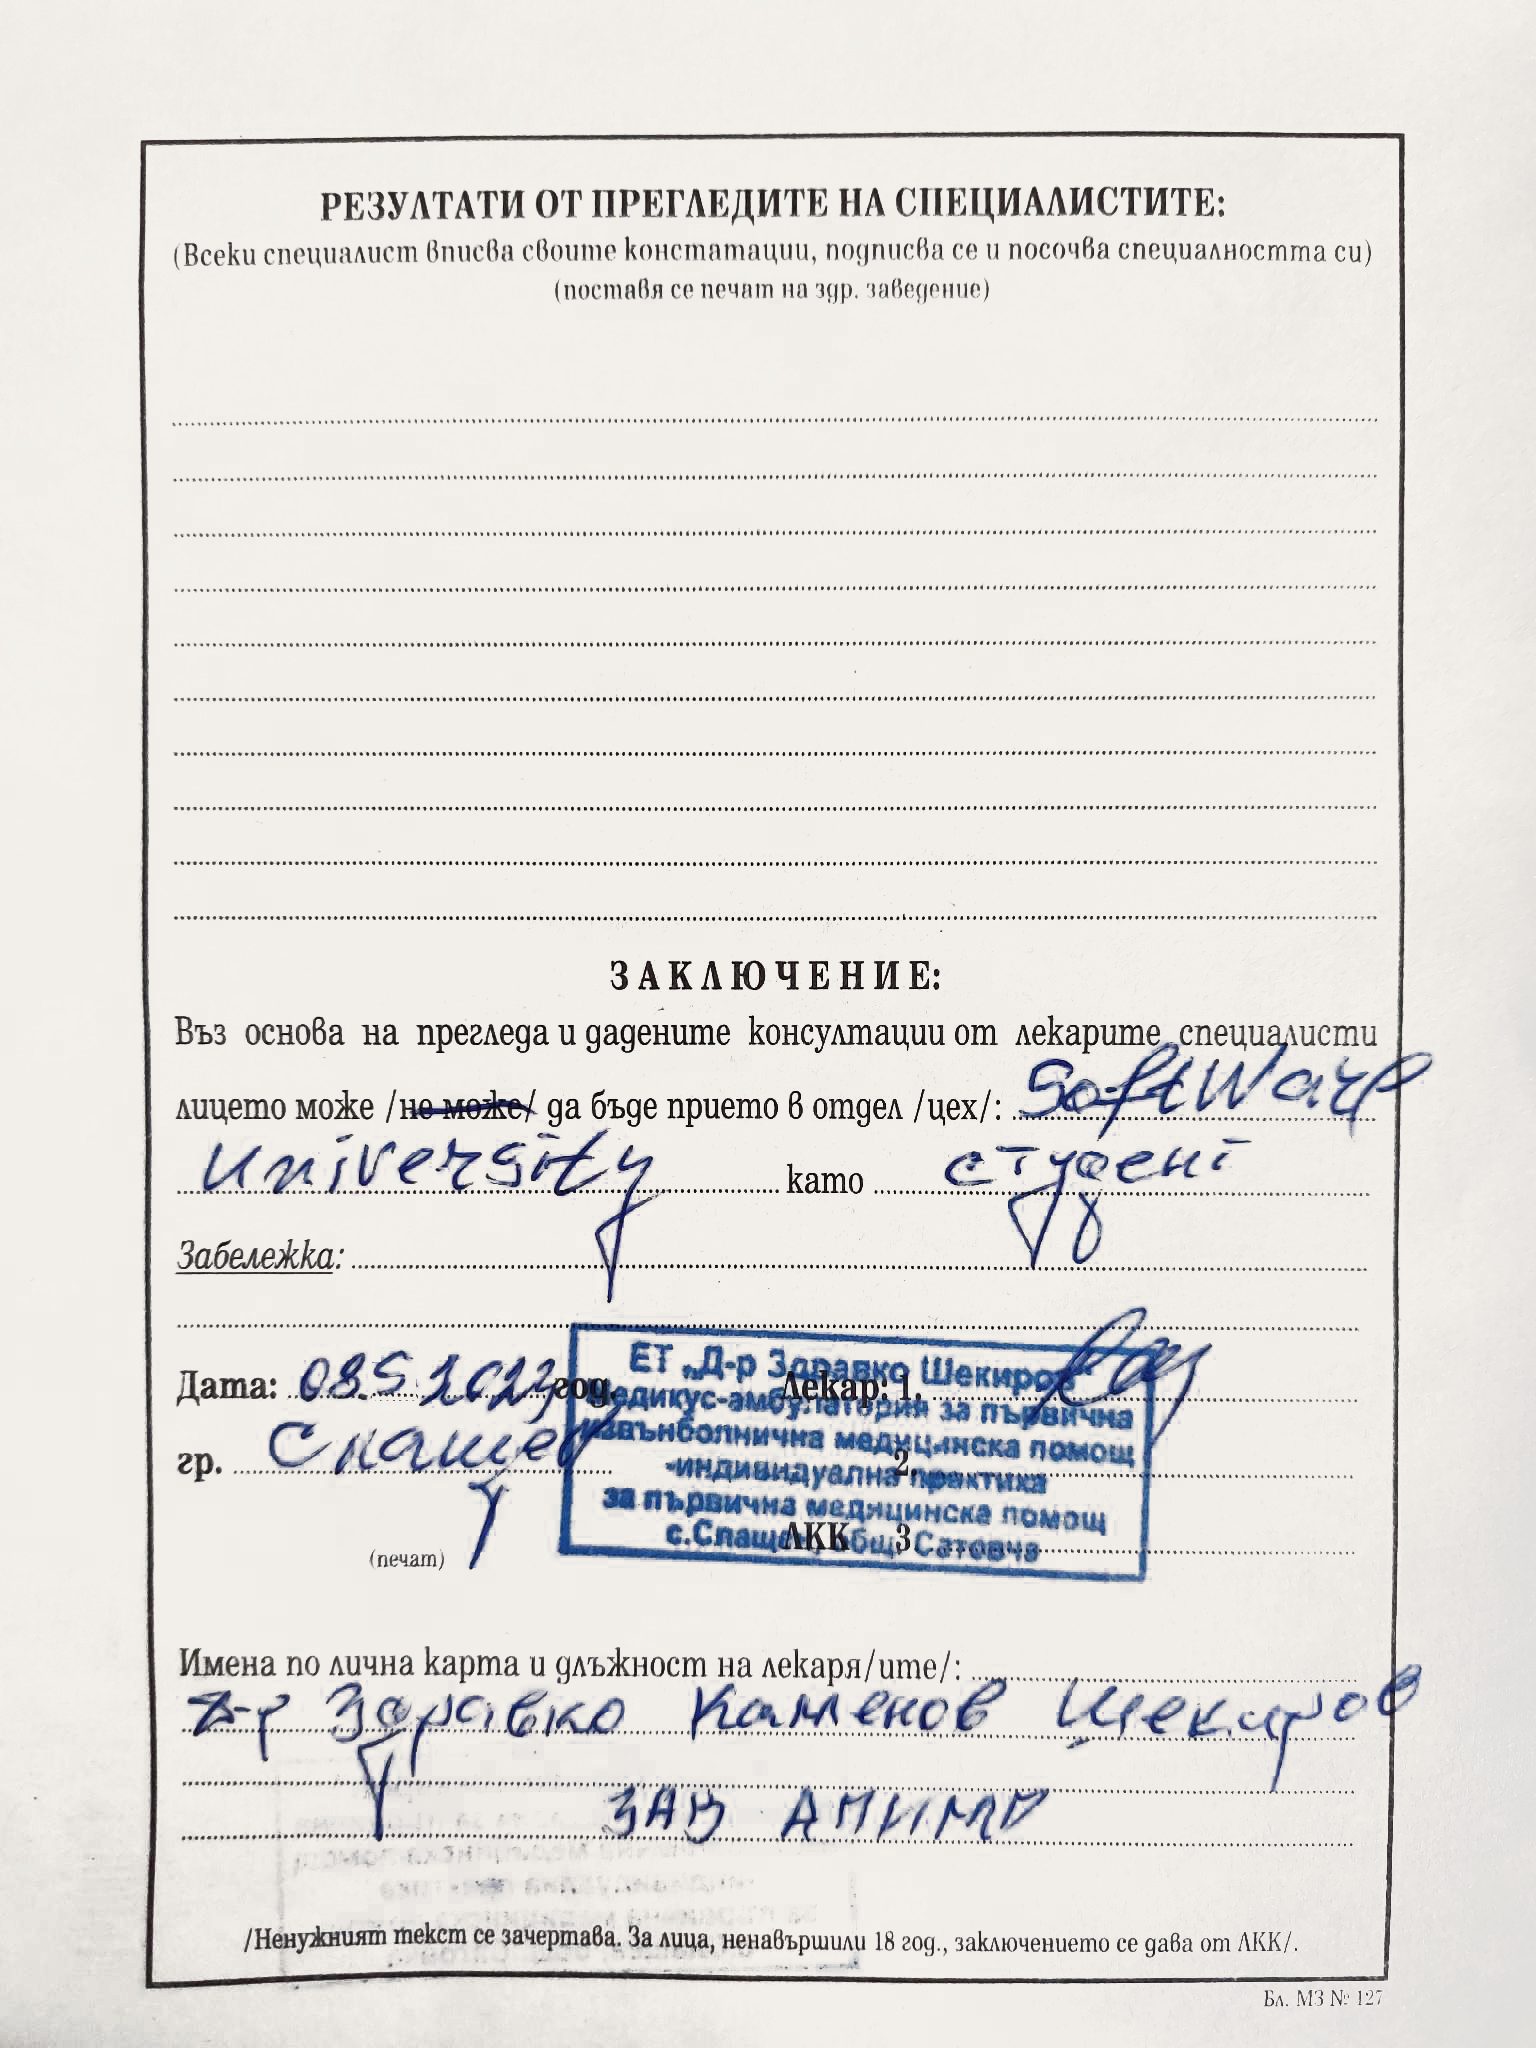 РЕЗУЛТАТИ ОТ ПРЕГЛЕДИТЕ НА СПЕЦИАЛИСТИТЕ:
(Всеки специалист вписва своите констатации, подписва се и посочва специалността си)
(поставя се печат на здр. заведение)
ЗАКЛЮЧЕНИЕ:
Въз основа на прегледа и дадените консултации от лекарите специалисти
лицето може /не може/ да бъде прието в отдел /цех/: SoftWare
University като студент
Забележка:
Дата: 08.5.2023 год. Лекар: 1.
гр. Слащен 2.
(печат) ЛКК 3.
ЕТ „Д-р Здравко Шекиров"
Медикус-амбулатория за първична
извънболнична медицинска помощ
-индивидуална практика
за първична медицинска помощ
с.Слащен, общ. Сатовча
Имена по лична карта и длъжност на лекаря/ите/:
Д-р Здравко Каменов Шекиров
ЗАВ АПИМП
/Ненужният текст се зачертава. За лица, ненавършили 18 год., заключението се дава от ЛКК/.
Бл. МЗ № 127